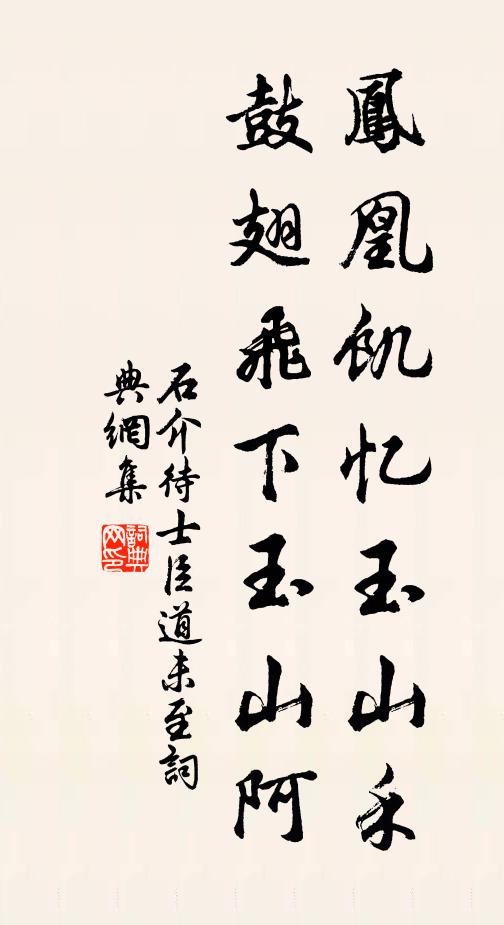 鳳凰飢忆玉山禾
鼓翅飛下玉山阿
石介待士臣道未至詞
典網集
詞典
网印